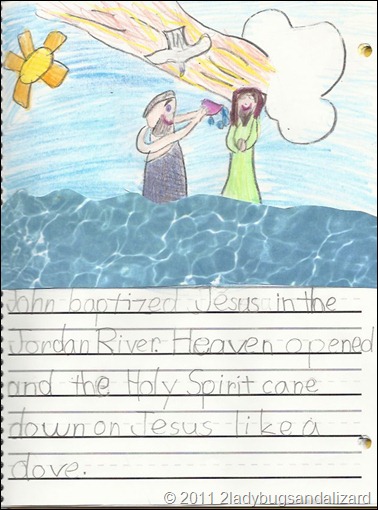 John baptized Jesus in the
Jordan River. Heaven opened
and the Holy Spirit cane
down on Jesus like a
dove.
© 2011 2ladybugsandalizard